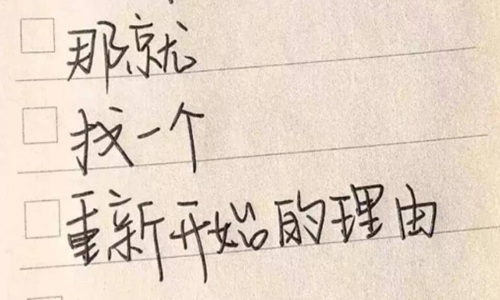 那就
找一个
重新开始的理由